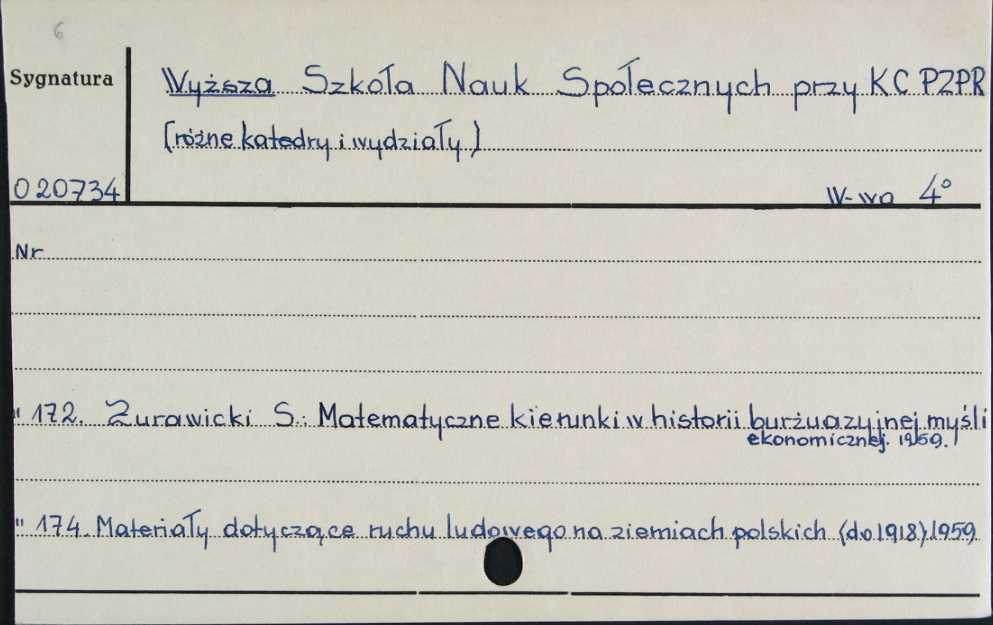 6
Sygnatura
Wyższa Szkoła Nauk Społecznych przy KC PZPR
(różne katedry i wydziały)
020734
W-wa 4°
Nr
" 172. Żurawicki S.: Matematyczne kierunki w historii burżuazyjnej myśli
ekonomicznej. 1959.
" 174. Materiały dotyczące ruchu ludowego na ziemiach polskich (do 1918). 1959